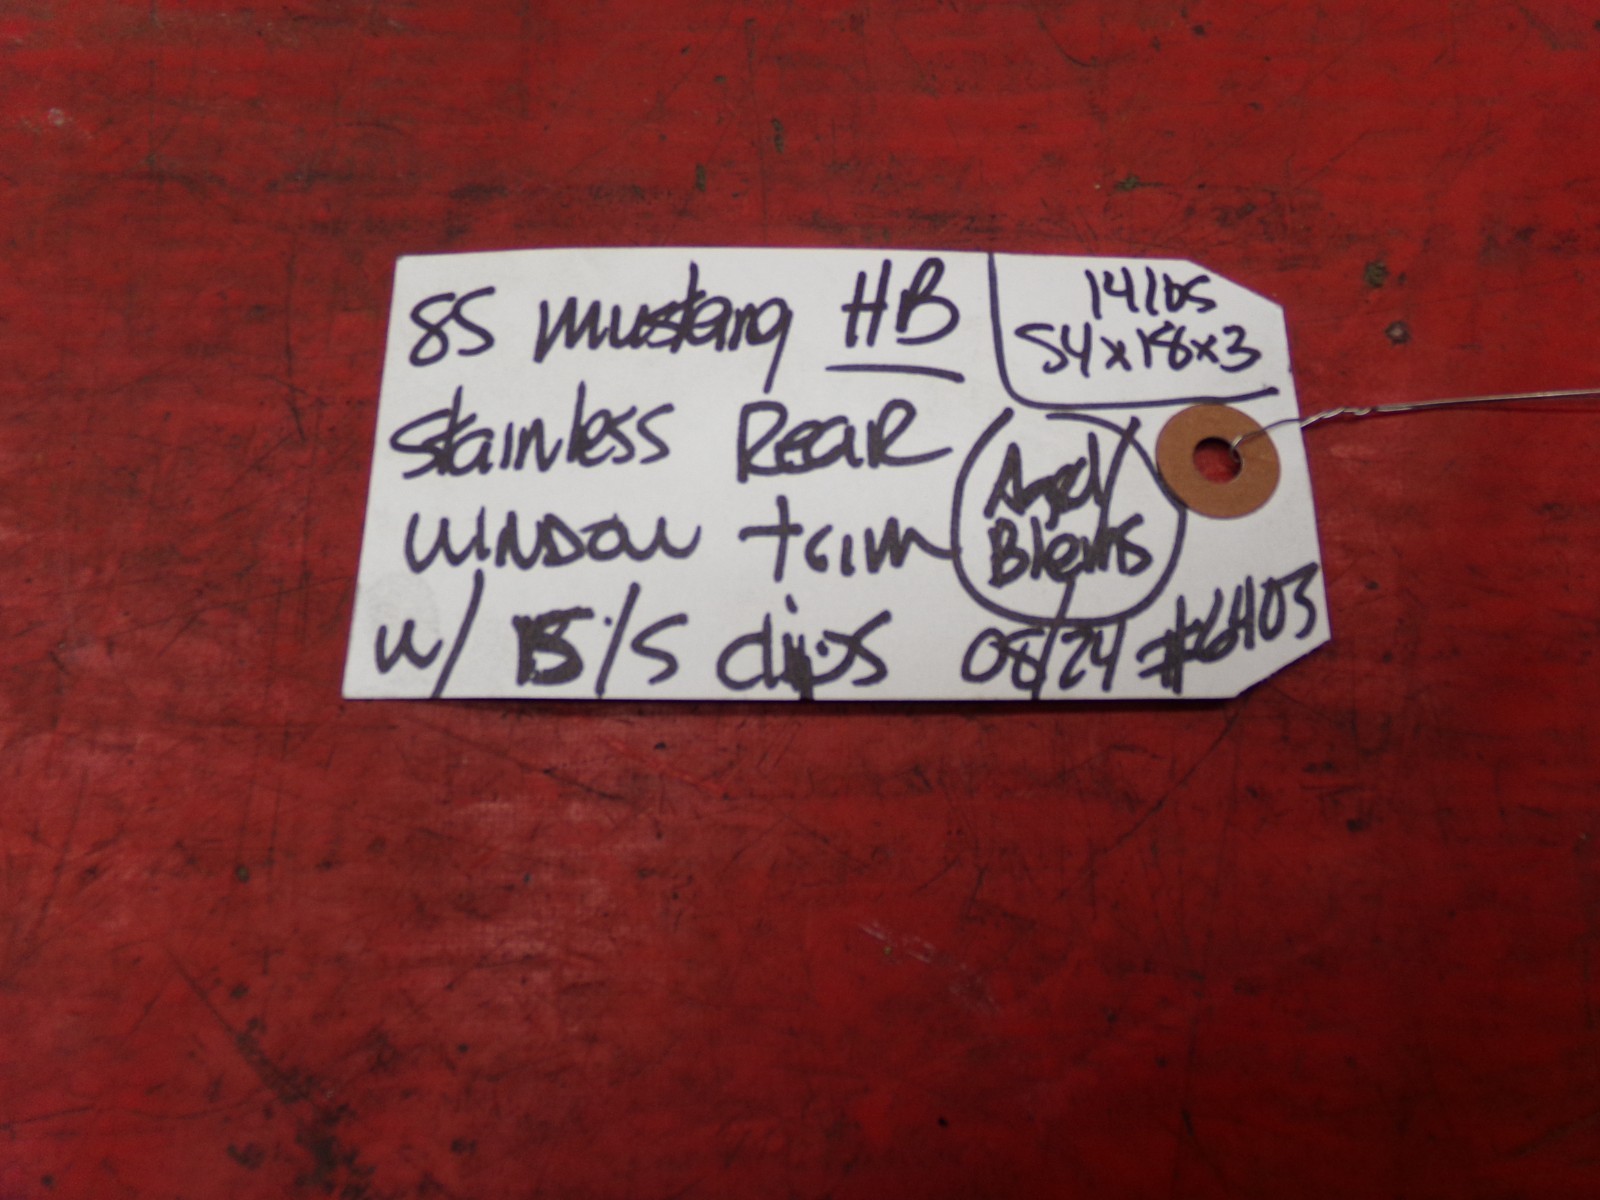 85 Mustang HB
Stainless Rear
Window trim
w/ 15/S clips 08/24 #6403
14 lbs
54x18x3
And
Blems